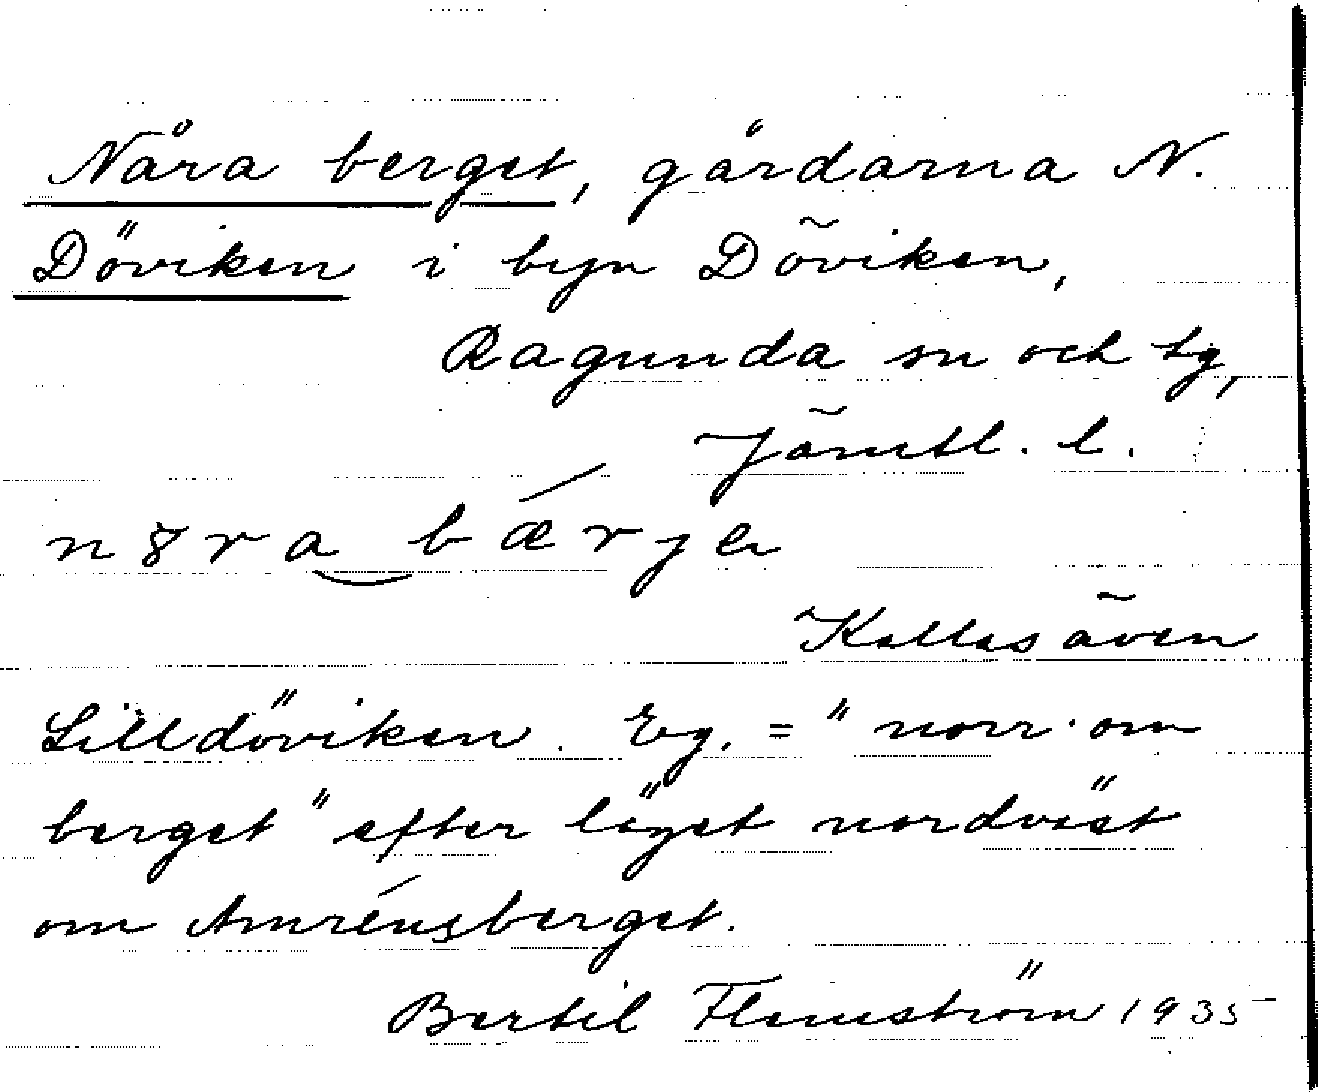 Nåra berget, gårdarna N.
Döviken i byn Döviken,
Ragunda sn och tg,
Jämtl. l.
n8ra bærje
Kallas även
Lilldöviken. Eg. = "norr om
berget" efter läget nordväst
om Amrénsberget.
Bertil Flemström 1935